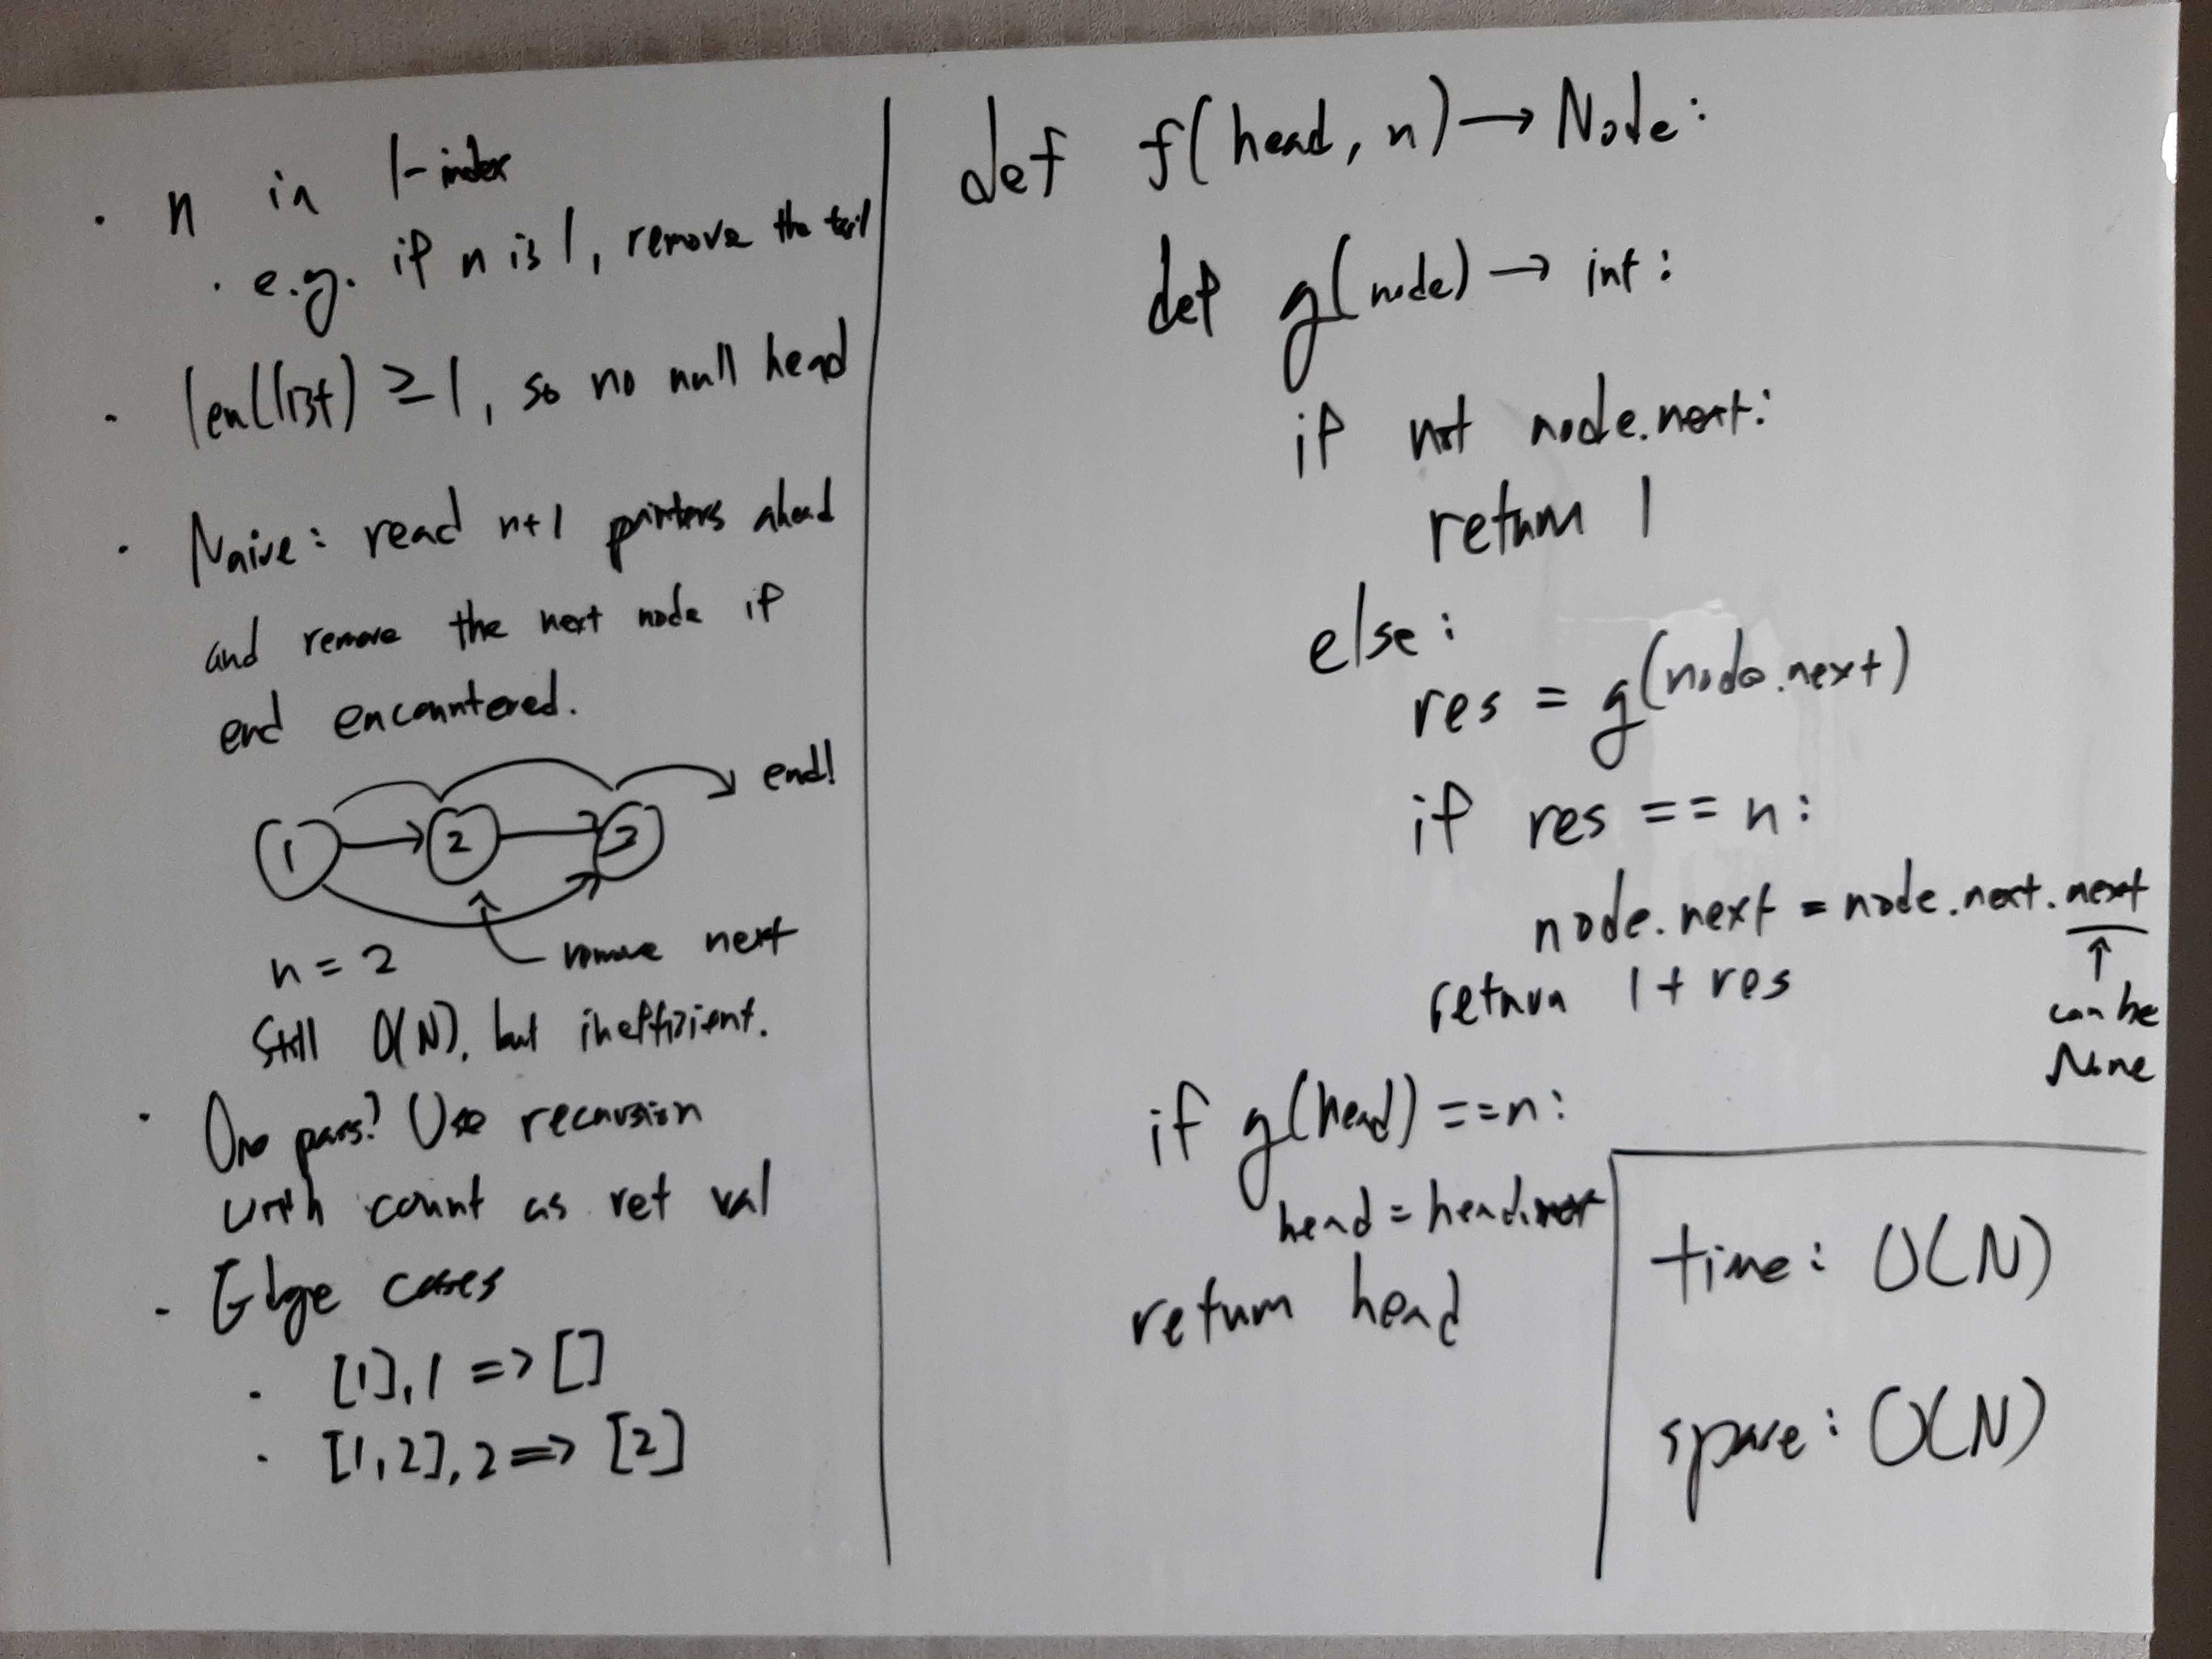 · n in 1-index
· e.g. if n is 1, remove the tail
· len(list) ≥ 1, so no null head
· Naive: read n+1 pointers ahead
and remove the next node if
end encountered.
end!
1 → 2 → 3
n = 2
remove next
Still O(N), but inefficient.
· One pass? Use recursion
with count as ret val
· Edge cases
· [1], 1 => []
· [1,2], 2 => [2]
def f(head, n) → Node:
def g(node) → int:
if not node.next:
return 1
else:
res = g(node.next)
if res == n:
node.next = node.next.next
↑
can be
None
return 1 + res
if g(head) == n:
head = head.next
return head
time: O(N)
space: O(N)